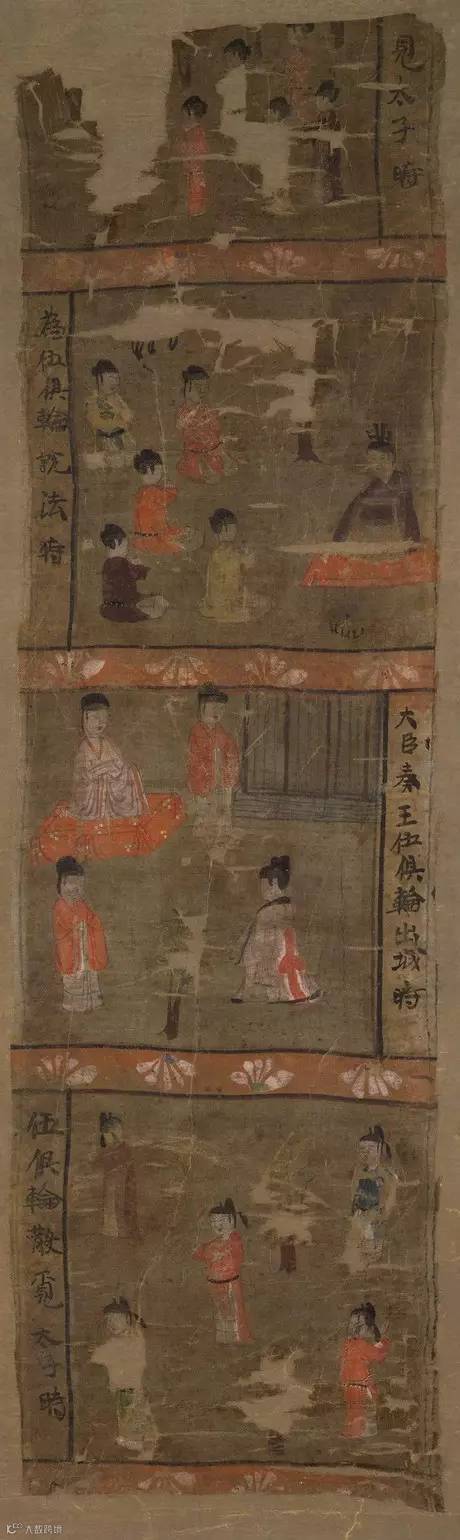 見太子時
為伍俱輪說法時
大臣奏王伍俱輪出城時
伍俱輪散覓太子時
大数跨境